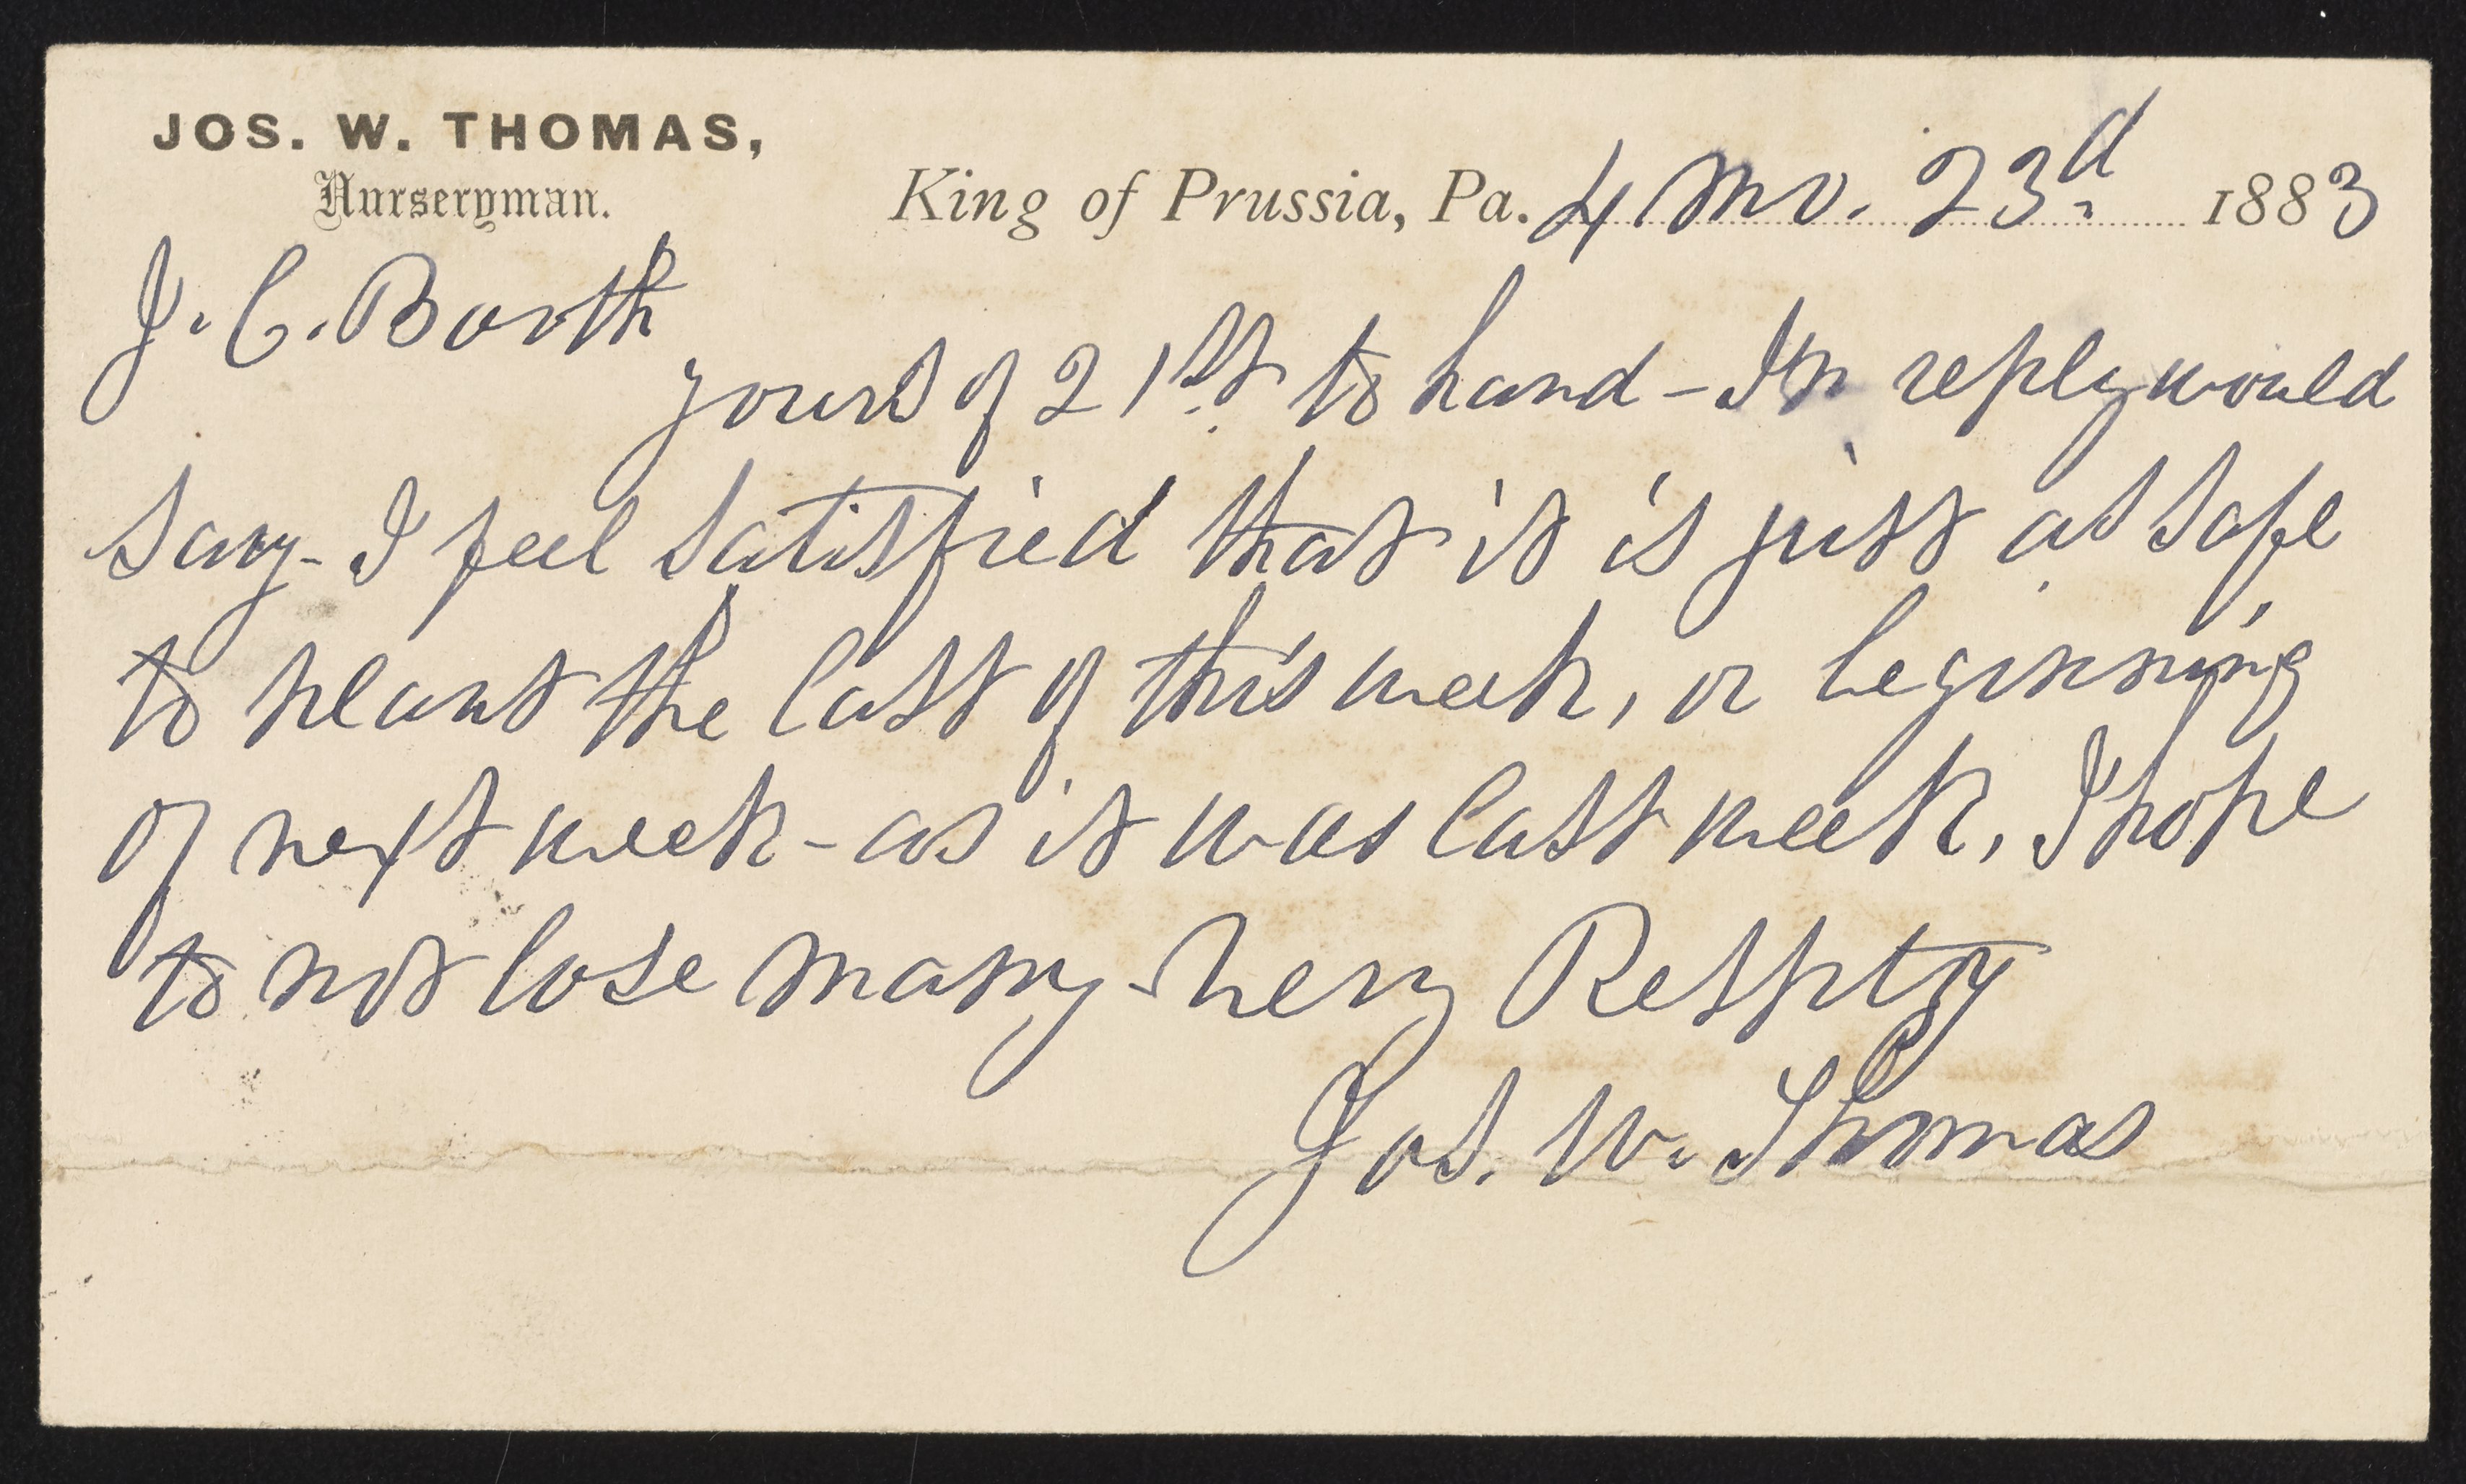 JOS. W. THOMAS,
Nurseryman.
King of Prussia, Pa. 4 mo. 23d 1883
J. C. Booth
yours of 21st to hand - In reply would
say - I feel satisfied that it is just as safe
to plant the last of this week, or beginning
of next week - as it was last week, I hope
to not lose many - Very Respty
Jos. W. Thomas